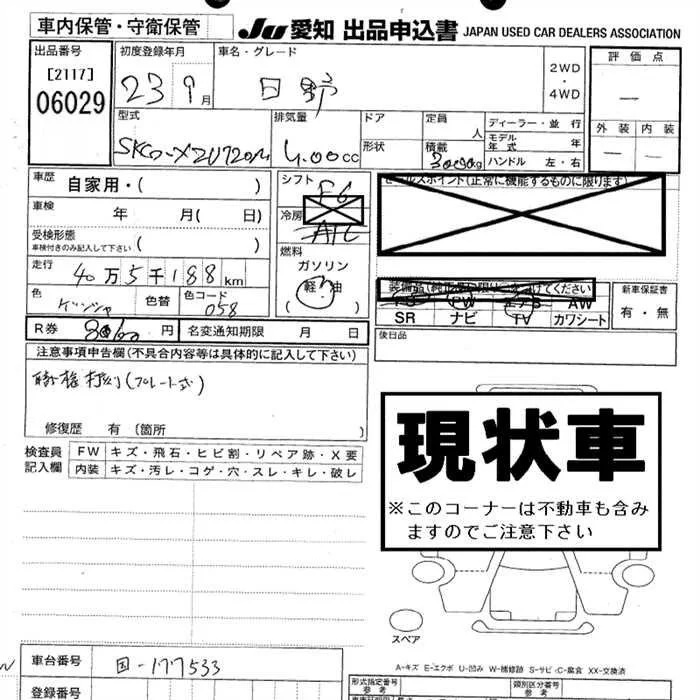 車内保管・守衛保管
JU 愛知 出品申込書 JAPAN USED CAR DEALERS ASSOCIATION
出品番号 初度登録年月 車名・グレード 評価点
[2117] 06029 23 9月 日野 2WD・4WD —
型式 排気量 ドア 定員 人 ディーラー・並行 外装 内装
SKG-XZU720M 4.00cc 形状 積載 3000kg モデル年式 年 — —
ハンドル 左・右
車歴 自家用・( ) シフト F6 セールスポイント(正常に機能するものに限ります)
車検 年 月(日) 冷房 A/C
受検形態 車検付きのみ記入して下さい ( ) 燃料
走行 40万5千188km ガソリン
軽油
( )
色 色替 色コード 058
装備品(純正品に限り○をつけてください) 新車保証書
PS PW エアB AW 有・無
SR ナビ TV カワシート
R券 円 名変通知期限 月 日 後日品
注意事項申告欄(不具合内容等は具体的に記入して下さい)
(プレート式)
修復歴 有(箇所 )
現状車
※このコーナーは不動車も含み
ますのでご注意下さい
検査員記入欄 FW キズ・飛石・ヒビ割・リペア跡・X要
内装 キズ・汚レ・コゲ・穴・スレ・キレ・破レ
スペア
A-キズ E-エクボ U-凹み W-補修跡 S-サビ C-腐食 XX-交換済
車台番号 国-177533
登録番号
形式指定番号 参考 類別区分番号 参考